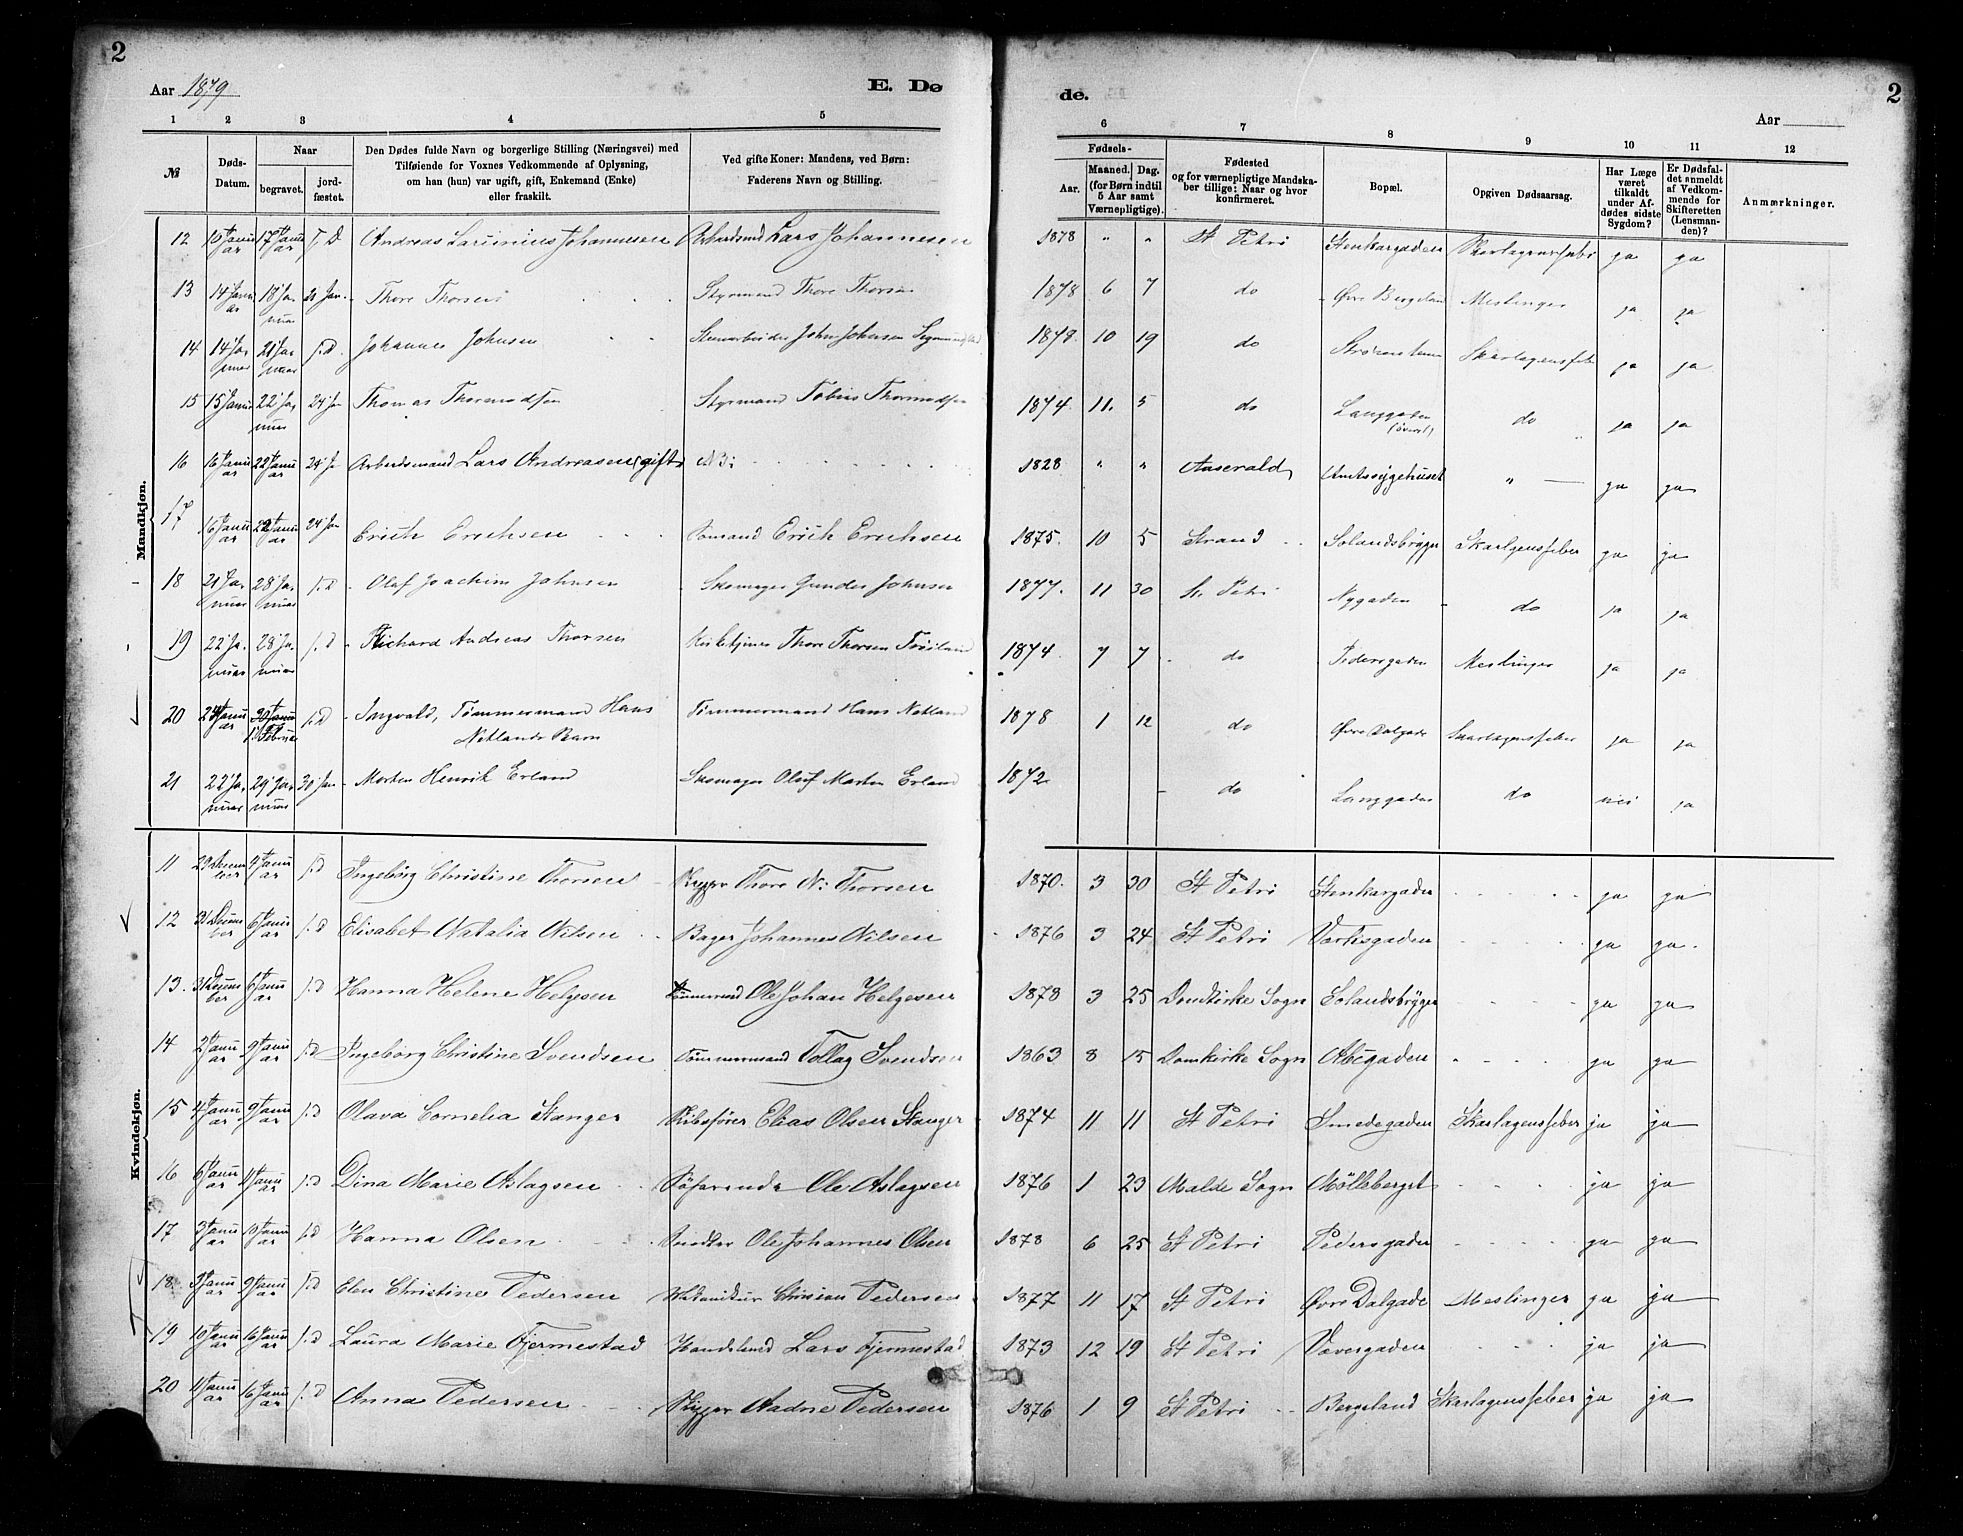 2
2
Aar 1879
E. Dø
de.
Aar
1 2 3 4 5 6 7 8 9 10 11 12
№
Døds-Datum.
Naar
begravet.
jord-fæstet.
Den Dødes fulde Navn og borgerlige Stilling (Næringsvei) med
Tilføiende for Voxnes Vedkommende af Oplysning,
om han (hun) var ugift, gift, Enkemand (Enke)
eller fraskilt.
Ved gifte Koner: Mandens, ved Børn:
Faderens Navn og Stilling.
Fødsels-
Aar.
Maaned. Dag.
(for Børn indtil
5 Aar samt
Værnepligtige).
Fødested
og for værnepligtige Mandska-
ber tillige: Naar og hvor
konfirmeret.
Bopæl.
Opgiven Dødsaarsag.
Har Læge
været
tilkaldt
under Af-
dødes sidste
Sygdom?
Er Dødsfal-
det anmeldt
af Vedkom-
mende for
Skifteretten
(Lensman-
den)?
Anmærkninger.
Mandkjøn.
12 Januar 17 Januar s. D Andreas Johannesen Arbeidsmd Lars Johannesen 1878 " " St Petri Stenkargaden Skarlagensfeber ja ja
13 14 Januar 18 Januar 21 Jan. Thore Thorsen Styrmand Thore Thorsen 1878 6 7 do Øvre Bergeland Meslinger ja ja
14 14 Januar 21 Januar s. D. Johannes Johnsen Stenarbeider John Johnsen 1878 10 19 do Skarlagensfeber ja ja
15 15 Januar 22 Januar 24 Jan Thomas Thormodsen Styrmand Tobias Thormodsen 1874 11. 5 do Langgaden (øverst) do ja ja
16 16 Januar 22 Januar 24 J Arbeidsmand Lars Andreasen (gift) 1828 " " Aaserald Amtssygehuset " ja ja
17 16 Januar 22 Januar 24 Jan Erich Erichsen Sømand Erich Erichsen 1875. 10 5 Strand Solandsbrygge Skarlagensfeber ja ja
18 21 Januar 28 Januar s. D Olaf Joachim Johnsen Skomager Gunder Johnsen 1877. 11 30 St. Petri Nygaden do ja ja
19 22 Januar 28 Januar s. D Richard Andreas Thorsen Thore Thorsen 1874 7 7 do Pedersgaden Meslinger ja ja
20 24 Januar 1 Februar s. D Ingvald, Tømmermand Hans Netlands Barn Tømmermand Hans Netland 1878 1 12 do Øvre Dalgade Skarlagensfeber ja ja
21 22 Januar 29 Januar 30 Jan Morten Henrik Erland Skomager Oluf Morten Erland 1872 do Langgaden do nei ja
Kvindekjøn.
11 29 December 4 Januar s. D Ingeborg Christine Thorsen Thore N. Thorsen 1870. 3 30 St Petri Stenkargaden ja ja
12 31 December 6 Januar s. D Elisabet Natalia Nilsen Bager Johannes Nilsen 1876 3 24 St Petri Verksgaden ja ja.
13. 31 December 6 Januar s. D Hanna Helene Helgesen Tømmermand Ole Johan Helgesen 1878 3 25 Domkirke Sogn Solandsbrygge ja ja
14 2 Januar 9 Januar s. D Ingeborg Christine Svendsen Tømmermand Tollag Svendsen 1863 8 15 Domkirke Sogn Abegaden ja ja
15 4 Januar 9 Januar s. D Olava Cornelia Stanger Elias Olsen Stanger 1874 11 11 St Petri Smedegaden Skarlagensfeber ja ja
16 6 Januar 11 Januar s. D Dina Marie Aslagsen Søfarende Ole Aslagsen 1876 1 23 Malde Sogn Mølleberget ja ja
17 3 Januar Januar s. D Hanna Olsen Snedker Ole Johannes Olsen 1878 6 25 St Petri Pedersgaden ja ja
18 3 Januar 9 Januar s. D Elen Christine Pedersen Christian Pedersen 1877 11 17 St Petri Øvre Dalgade Meslinger ja ja
19 10 Januar 16 Januar s. D Laura Marie Fjermestad Handelsmd Lars Fjermestad 1873 12 19 St Petri Vævergaden ja ja
20 11 Januar 16 Januar s. D Anna Pedersen Aadne Pedersen 1876 1 9 St Petri Bergeland Skarlagensfeber ja ja